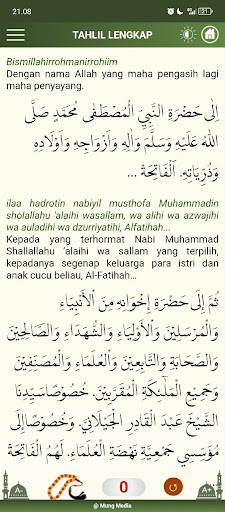 21.08
4G
21
TAHLIL LENGKAP
Bismillahirrohmanirrohiim
Dengan nama Allah yang maha pengasih lagi
maha penyayang.
اِلٰى حَضْرَةِ النَّبِيِّ الْمُصْطَفٰى مُحَمَّدٍ صَلَّى
اللهُ عَلَيْهِ وَسَلَّمَ وَاٰلِهِ وَاَزْوَاجِهِ وَاَوْلَادِهِ
وَذُرِّيَاتِهِ. اَلْفَاتِحَةُ ...
ilaa hadrotin nabiyil musthofa Muhammadin
sholallahu 'alaihi wasallam, wa alihi wa azwajihi
wa auladihi wa dzurriyatihi, Alfatihah...
Kepada yang terhormat Nabi Muhammad
Shallallahu 'alaihi wa sallam yang terpilih,
kepadanya segenap keluarga para istri dan
anak cucu beliau, Al-Fatihah...
ثُمَّ اِلٰى حَضْرَةِ اِخْوَانِهِ مِنَ الْاَنْبِيَاءِ
وَالْمُرْسَلِيْنَ وَالْاَوْلِيَاءِ وَالشُّهَدَاءِ وَالصَّالِحِيْنَ
وَالصَّحَابَةِ وَالتَّابِعِيْنَ وَالْعُلَمَاءِ وَالْمُصَنِّفِيْنَ
وَجَمِيْعِ الْمَلٰئِكَةِ الْمُقَرَّبِيْنَ. خُصُوْصًا سَيِّدِنَا
الشَّيْخِ عَبْدِ الْقَادِرِ الْجَيْلَانِيْ. وَخُصُوْصًا اِلٰى
مُؤَسِّسِيْ جَمْعِيَّةِ نَهْضَةِ الْعُلَمَاءِ. لَهُمُ الْفَاتِحَةُ
0
@ Mung Media